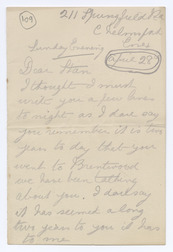 109
211 Springfield Rd
Chelmsford
Essex
Sunday Evening
April 28th
Dear Stan
I thought I would
write you a few lines
to night as I dare say
you remember it is two
years to day that you
went to Brentwood
we have been talking
about you, I dare say
it has seemed a long
two years to you it has
to me